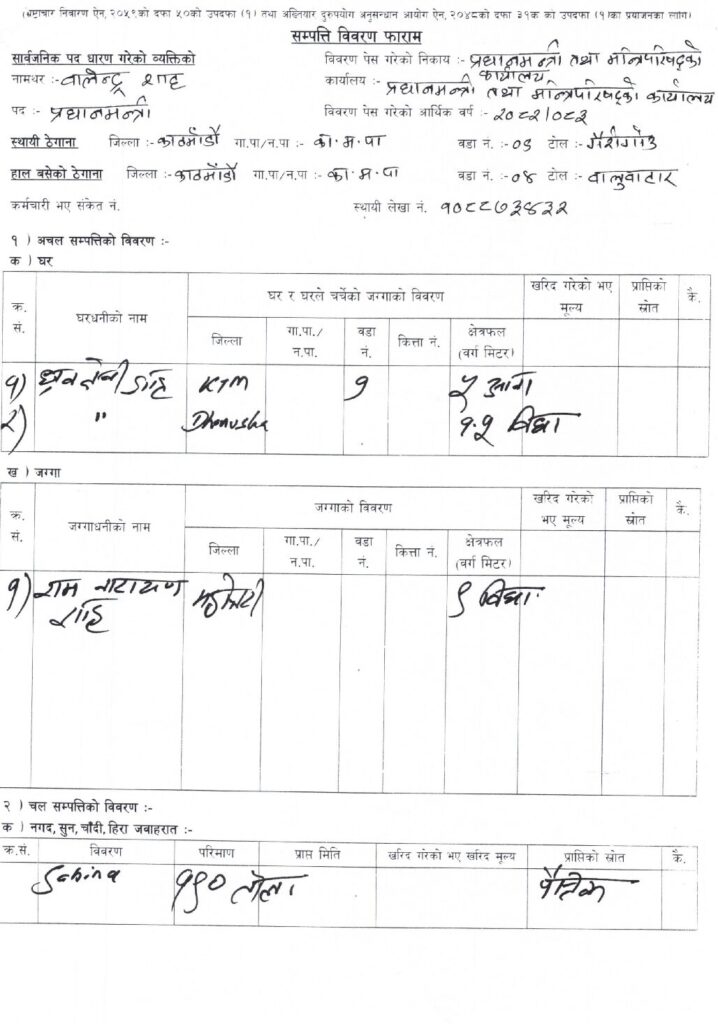 (भ्रष्टाचार निवारण ऐन, २०५९को दफा ५०को उपदफा (१) तथा अख्तियार दुरुपयोग अनुसन्धान आयोग ऐन, २०४८को दफा ३१क को उपदफा (१)का प्रयोजनका लागि)
सम्पत्ति विवरण फाराम
सार्वजनिक पद धारण गरेको व्यक्तिको विवरण पेस गरेको निकाय :- प्रधानमन्त्री तथा मन्त्रिपरिषद्को कार्यालय
नामथर :- वालेन्द्र शाह कार्यालय :- प्रधानमन्त्री तथा मन्त्रिपरिषद्को कार्यालय
पद :- प्रधानमन्त्री विवरण पेस गरेको आर्थिक वर्ष :- २०८२/०८३
स्थायी ठेगाना जिल्ला :- काठमाडौं गा.पा/न.पा :- का.म.पा वडा नं. :- ०९ टोल :-
हाल बसेको ठेगाना जिल्ला :- काठमाडौं गा.पा/न.पा :- का.म.पा वडा नं. :- ०४ टोल :- वालुवाटार
कर्मचारी भए संकेत नं. स्थायी लेखा नं. १०८८७३४३२
१ ) अचल सम्पत्तिको विवरण :-
क ) घर
क्र. सं. घरधनीको नाम घर र घरले चर्चेको जग्गाको विवरण खरिद गरेको भए मूल्य प्राप्तिको स्रोत कै.
जिल्ला गा.पा./ न.पा. वडा नं. कित्ता नं. क्षेत्रफल (वर्ग मिटर)
१) ध्रुव देवी शाह KTM १ ५ आना
२) " Dhanusha १.५ विघा
ख ) जग्गा
क्र. सं. जग्गाधनीको नाम जग्गाको विवरण खरिद गरेको भए मूल्य प्राप्तिको स्रोत कै.
जिल्ला गा.पा./ न.पा. वडा नं. कित्ता नं. क्षेत्रफल (वर्ग मिटर)
१) राम नारायण शाह महोत्तरी ९ विघा
२ ) चल सम्पत्तिको विवरण :-
क ) नगद, सुन, चाँदी, हिरा जवाहरात :-
क्र.सं. विवरण परिमाण प्राप्त मिति खरिद गरेको भए खरिद मूल्य प्राप्तिको स्रोत कै.
Sabina १९० तोला पैत्रिक